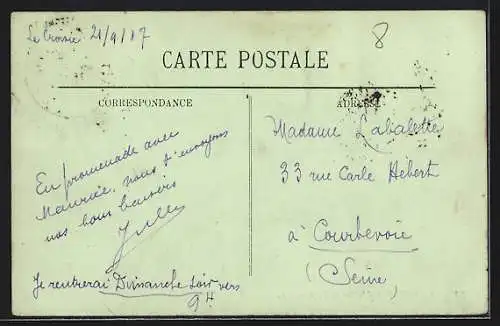 Le Croisic 21/9/17
8
CARTE POSTALE
CORRESPONDANCE
ADRESSE
En promenade avec
Maurice, nous t'envoyons
nos bons baisers
Madame Labalette
33 rue Carle Hébert
à Courbevoie
(Seine)
Je rentrerai Dimanche soir vers
9H.